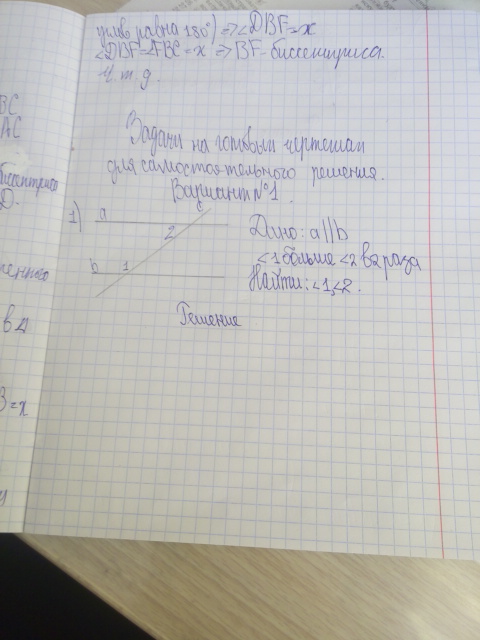 углов равна 180°) => <DBF=x
<DBF=<FBC=x => BF-биссектриса.
Ч.т.д.
BC
AC
Задачи на готовым чертежам
для самостоятельного решения.
биссектриса
D.
Вариант №1.
1)
a
c
2
Дано: a||b
b
1
<1 больше <2 в 2 раза
Найти: <1,<2.
Решение
в Δ
B=x